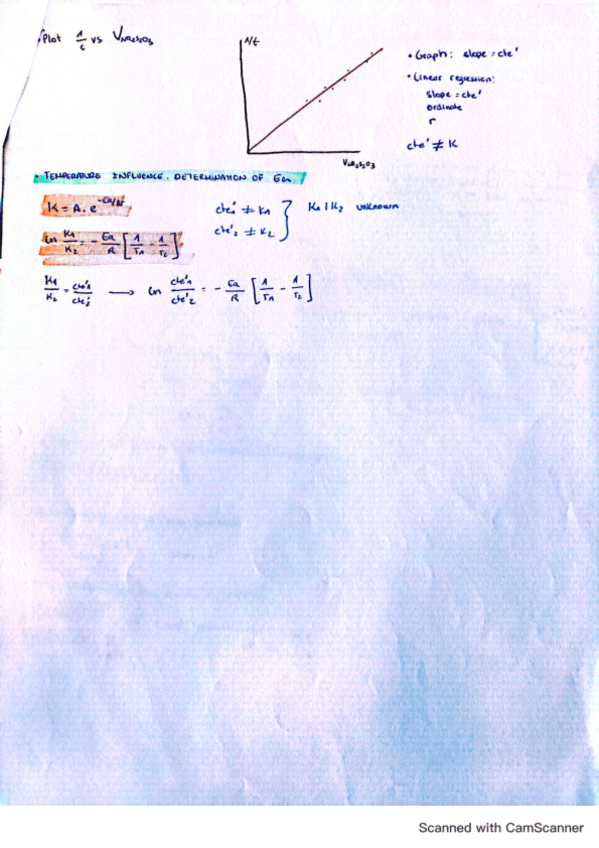 · Plot 1/t vs VNa2S2O3
1/t
VNa2S2O3
· Graph: slope = cte'
· Linear regression:
slope = cte'
ordinate
r
cte' ≠ K
· TEMPERATURE INFLUENCE. DETERMINATION OF Ea
K = A. e^-Ea/RT
ln K1/K2 = - Ea/R [1/T1 - 1/T2]
cte'1 ≠ K1
cte'2 ≠ K2
K1 | K2 unknown
K1/K2 = cte'1/cte'2 → ln cte'1/cte'2 = - Ea/R [1/T1 - 1/T2]
Scanned with CamScanner